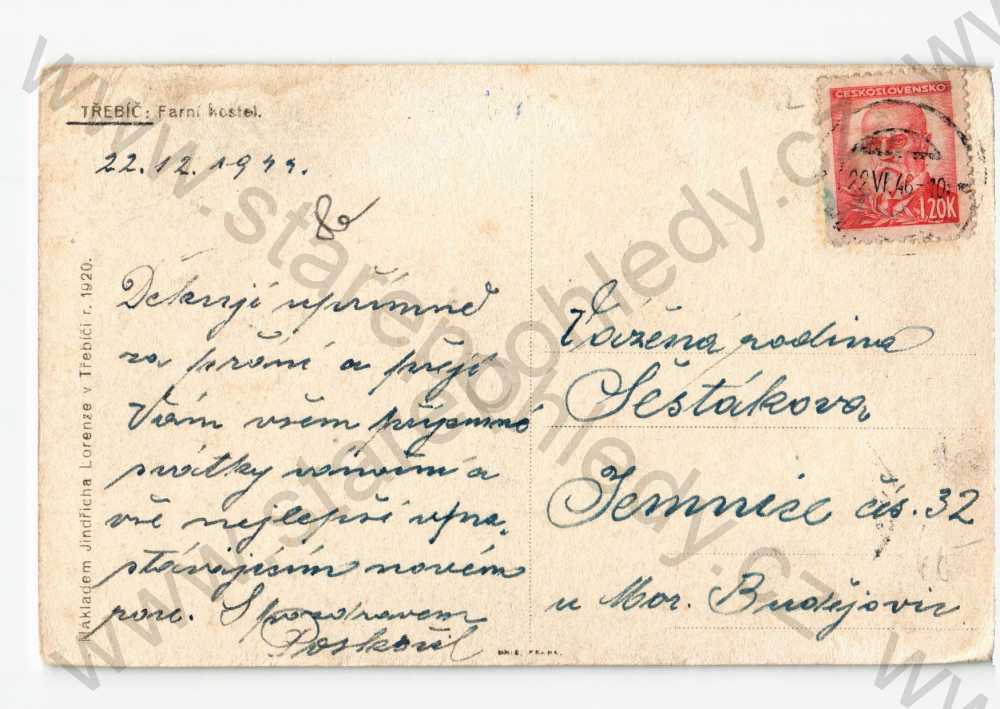 TŘEBÍČ: Farní kostel.
22.12.1944.
Děkuji upřímně
za přání a přeji
Vám všem příjemné
svátky vánoční a
vše nejlepší v na-
stávajícím novém
roce. S pozdravem
Nakladem Jindřicha Lorenze v Třebíči r. 1920.
ČESKOSLOVENSKO
22.VI.46-10
1,20K
Vážená rodina
Šestákova
Jemnice čís. 32
u Mor. Budějovic
www.starepohledy.cz
www.starepohledy.cz